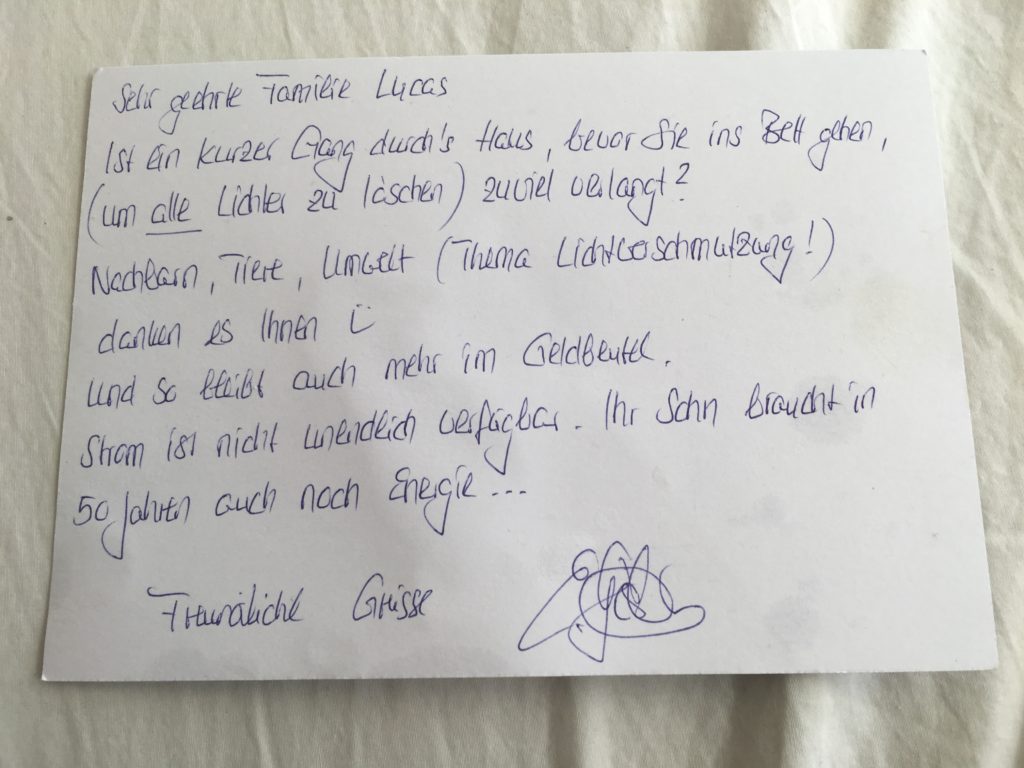 Sehr geehrte Familie Lucas
Ist ein kurzer Gang durch's Haus, bevor Sie ins Bett gehen,
(um alle Lichter zu löschen) zuviel verlangt?
Nachbarn, Tiere, Umwelt (Thema Lichtverschmutzung!)
danken es Ihnen Ü
Und so bleibt auch mehr im Geldbeutel.
Strom ist nicht unendlich verfügbar. Ihr Sohn braucht in
50 Jahren auch noch Energie...
Freundliche Grüsse